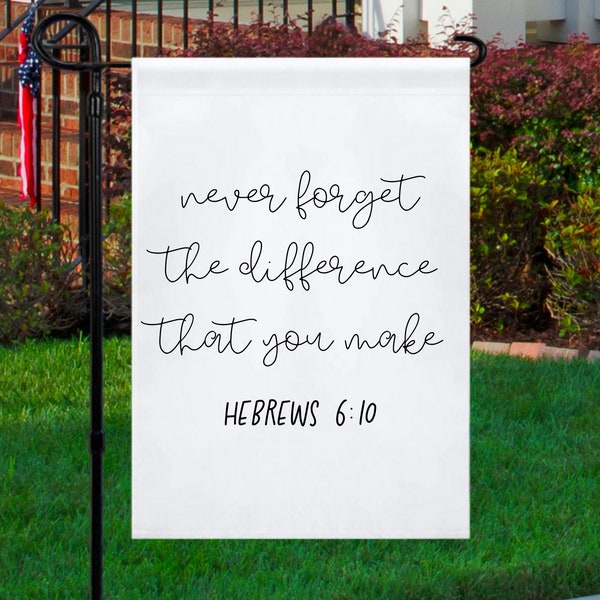 never forget
the difference
that you make
HEBREWS 6:10